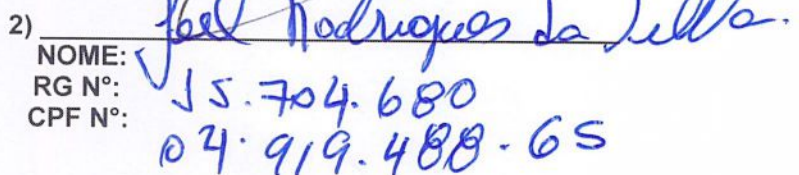 2) Joel Rodrigues da Silva.
NOME:
RG Nº: 15.704.680
CPF Nº: 04.919.488-65